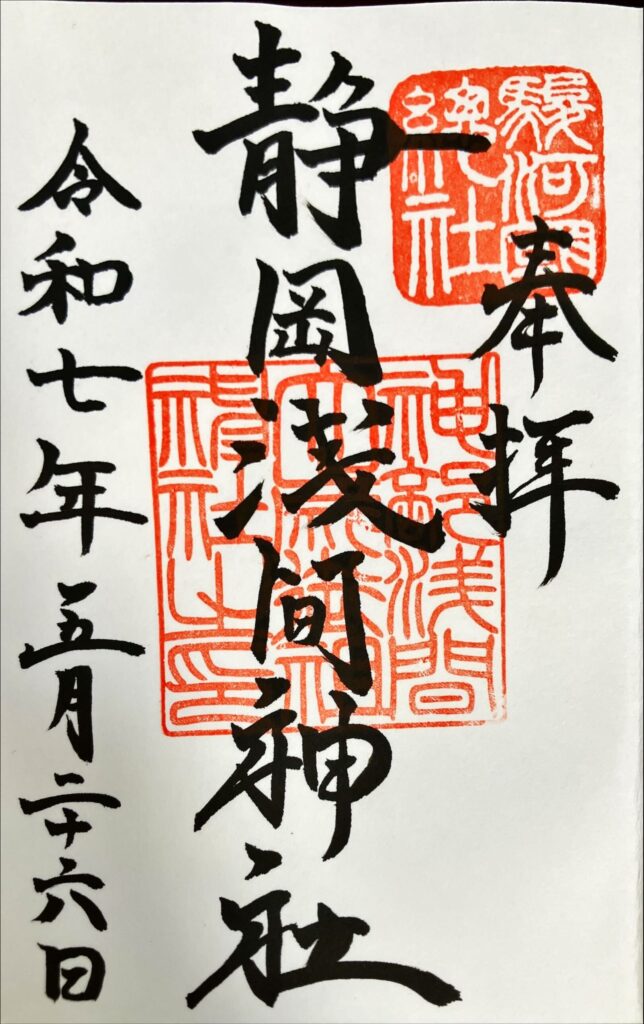 駿河國
總社
奉拝
静岡浅間神社
神部浅間
大歳御祖
神社之印
令和七年五月二十六日